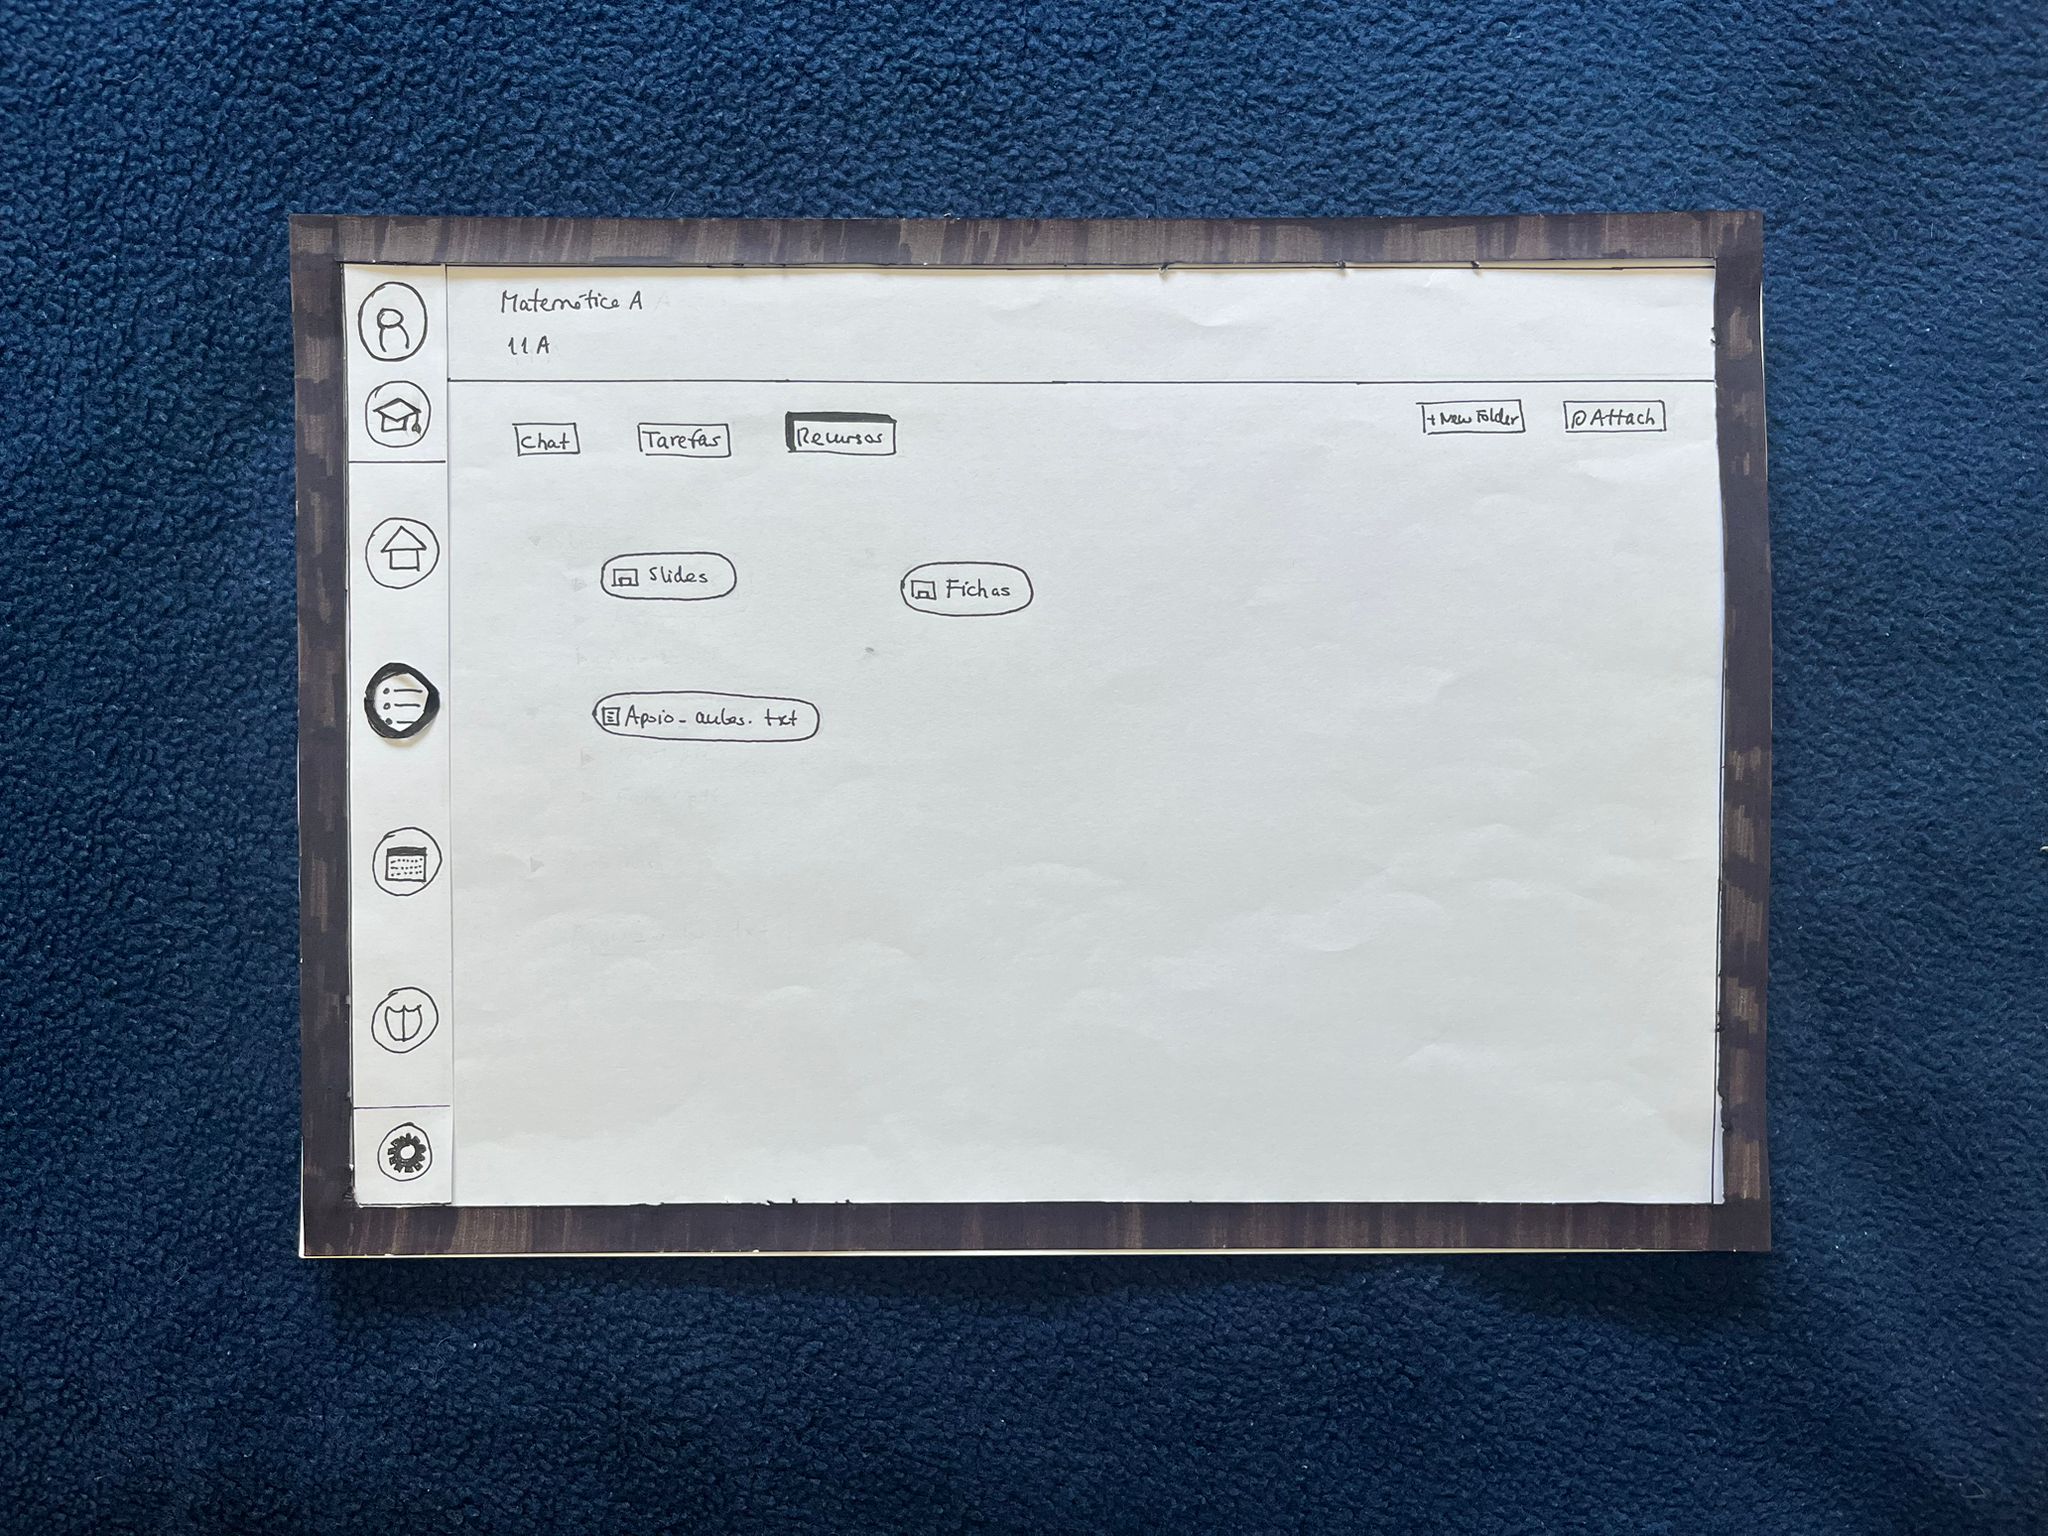 Matemática A
11 A
Chat Tarefas Recursos
+ New Folder Attach
Slides Fichas
Apoio_aulas.txt